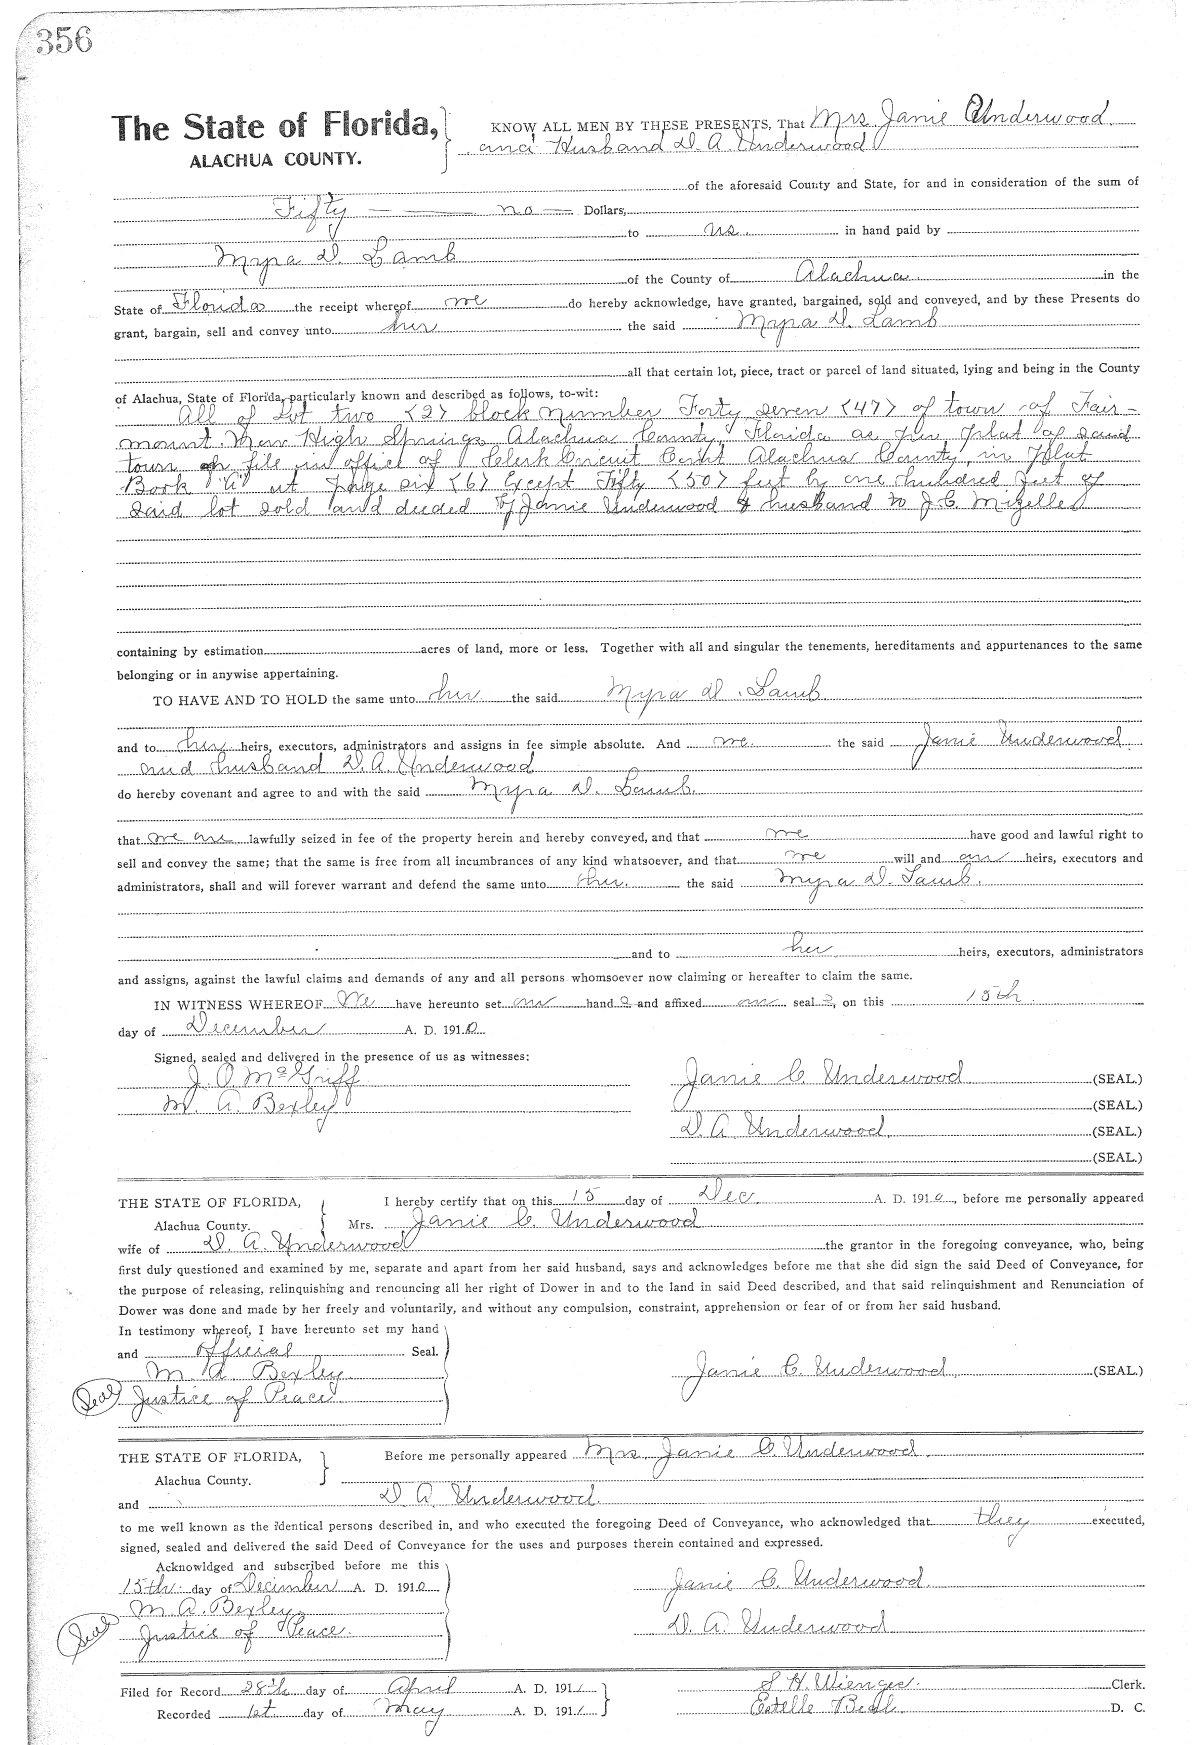 356
The State of Florida, KNOW ALL MEN BY THESE PRESENTS, That Mrs. Janie Underwood
ALACHUA COUNTY. and Husband D. A. Underwood
of the aforesaid County and State, for and in consideration of the sum of
Fifty — no — Dollars,
to us in hand paid by
Myra D. Lamb
of the County of Alachua in the
State of Florida the receipt whereof we do hereby acknowledge, have granted, bargained, sold and conveyed, and by these Presents do
grant, bargain, sell and convey unto her the said Myra D. Lamb
all that certain lot, piece, tract or parcel of land situated, lying and being in the County
of Alachua, State of Florida, particularly known and described as follows, to-wit:
All of Lot two (2) block number Forty seven (47) of town of Fair-
mount Near High Springs, Alachua County, Florida as per plat of said
town on file in office of Clerk Circuit Court Alachua County, in Plat
Book "A" at page six (6) Except Fifty (50) feet by one hundred feet of
said lot sold and deeded by Janie Underwood & husband to J. C. Mizelle
containing by estimation acres of land, more or less. Together with all and singular the tenements, hereditaments and appurtenances to the same
belonging or in anywise appertaining.
TO HAVE AND TO HOLD the same unto her the said Myra D. Lamb
and to her heirs, executors, administrators and assigns in fee simple absolute. And we the said Janie Underwood
and husband D. A. Underwood
do hereby covenant and agree to and with the said Myra D. Lamb
that we are lawfully seized in fee of the property herein and hereby conveyed, and that we have good and lawful right to
sell and convey the same; that the same is free from all incumbrances of any kind whatsoever, and that we will and our heirs, executors and
administrators, shall and will forever warrant and defend the same unto her the said Myra D. Lamb.
and to her heirs, executors, administrators
and assigns, against the lawful claims and demands of any and all persons whomsoever now claiming or hereafter to claim the same.
IN WITNESS WHEREOF We have hereunto set our hand s and affixed our seal s, on this 15th
day of December A. D. 1910
Signed, sealed and delivered in the presence of us as witnesses:
J. O. McGriff Janie C. Underwood (SEAL.)
M. A. Bexley (SEAL.)
D. A. Underwood (SEAL.)
(SEAL.)
THE STATE OF FLORIDA, I hereby certify that on this 15 day of Dec. A. D. 1910, before me personally appeared
Alachua County. Mrs. Janie C. Underwood
wife of D. A. Underwood the grantor in the foregoing conveyance, who, being
first duly questioned and examined by me, separate and apart from her said husband, says and acknowledges before me that she did sign the said Deed of Conveyance, for
the purpose of releasing, relinquishing and renouncing all her right of Dower in and to the land in said Deed described, and that said relinquishment and Renunciation of
Dower was done and made by her freely and voluntarily, and without any compulsion, constraint, apprehension or fear of or from her said husband.
In testimony whereof, I have hereunto set my hand
and official Seal.
M. A. Bexley Janie C. Underwood (SEAL.)
Seal Justice of Peace
THE STATE OF FLORIDA, Before me personally appeared Mrs. Janie C. Underwood
Alachua County.
and D A Underwood
to me well known as the identical persons described in, and who executed the foregoing Deed of Conveyance, who acknowledged that they executed,
signed, sealed and delivered the said Deed of Conveyance for the uses and purposes therein contained and expressed.
Acknowldged and subscribed before me this
15th day of December A. D. 1910 Janie C. Underwood
M A. Bexley
Seal Justice of Peace. D. A. Underwood
Filed for Record 28th day of April A. D. 1911 S. H. Wienges Clerk.
Recorded 1st day of May A. D. 1911 Estelle Beal D. C.